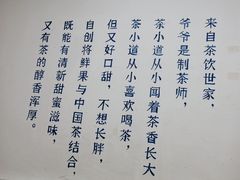 来自茶饮世家，
爷爷是制茶师，
茶小道从小闻着茶香长大
茶小道从小喜欢喝茶，
但又好口甜，不想长胖，
自创将鲜果与中国茶结合，
既能有清新甜蜜滋味，
又有茶的醇香浑厚。